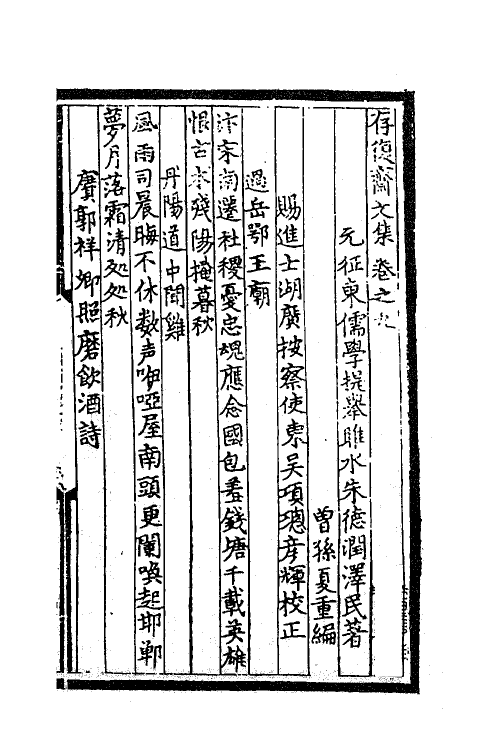 存復齋文集卷之九
元征東儒學提舉睢水朱德潤澤民著
曾孫夏重編
賜進士湖廣按察使東吳項璁彥輝校正
過岳鄂王廟
汴宋南遷社稷憂忠魂應念國包羞錢塘千載英雄
恨古木殘陽掩暮秋
丹陽道中聞雞
風雨司晨晦不休数声咿啞屋南頭更闌喚起邯鄲
夢月落霜清处处秋
賡郭祥卿照磨飲酒詩